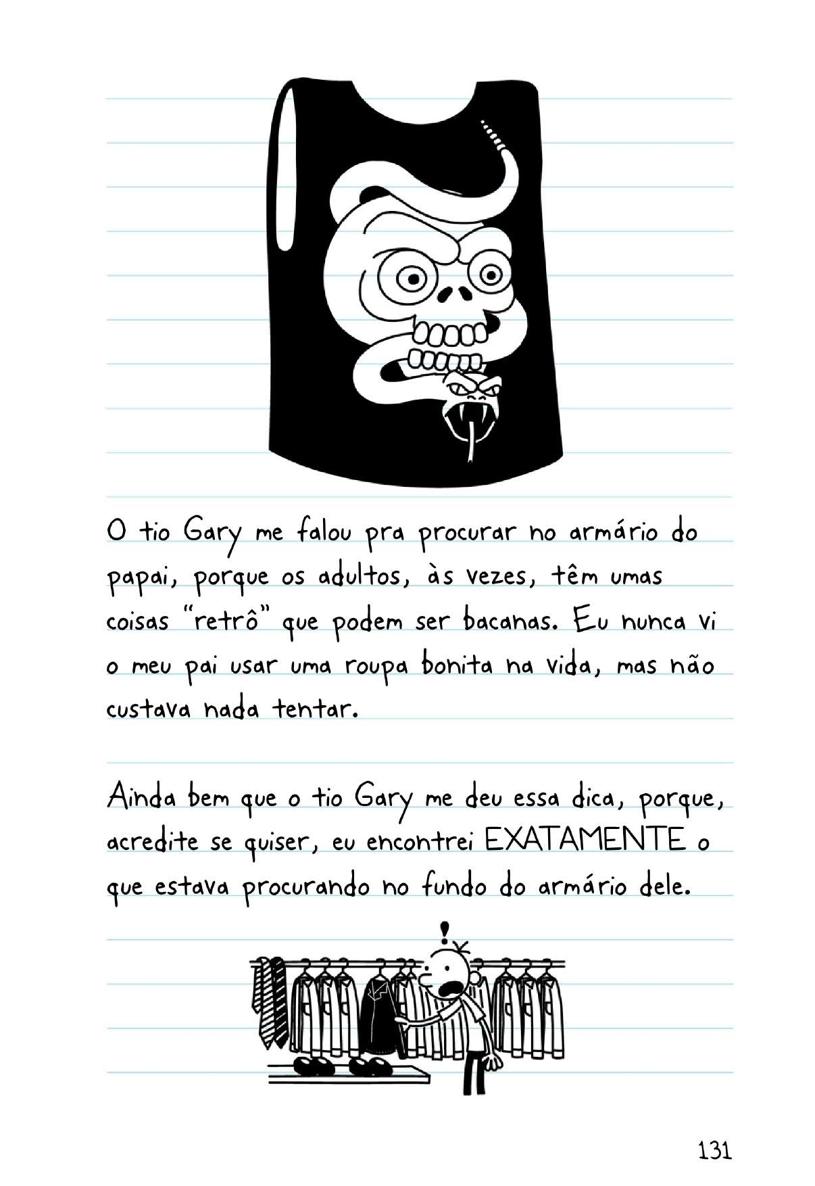 O tio Gary me falou pra procurar no armário do
papai, porque os adultos, às vezes, têm umas
coisas “retrô” que podem ser bacanas. Eu nunca vi
o meu pai usar uma roupa bonita na vida, mas não
custava nada tentar.
Ainda bem que o tio Gary me deu essa dica, porque,
acredite se quiser, eu encontrei EXATAMENTE o
que estava procurando no fundo do armário dele.
!
131